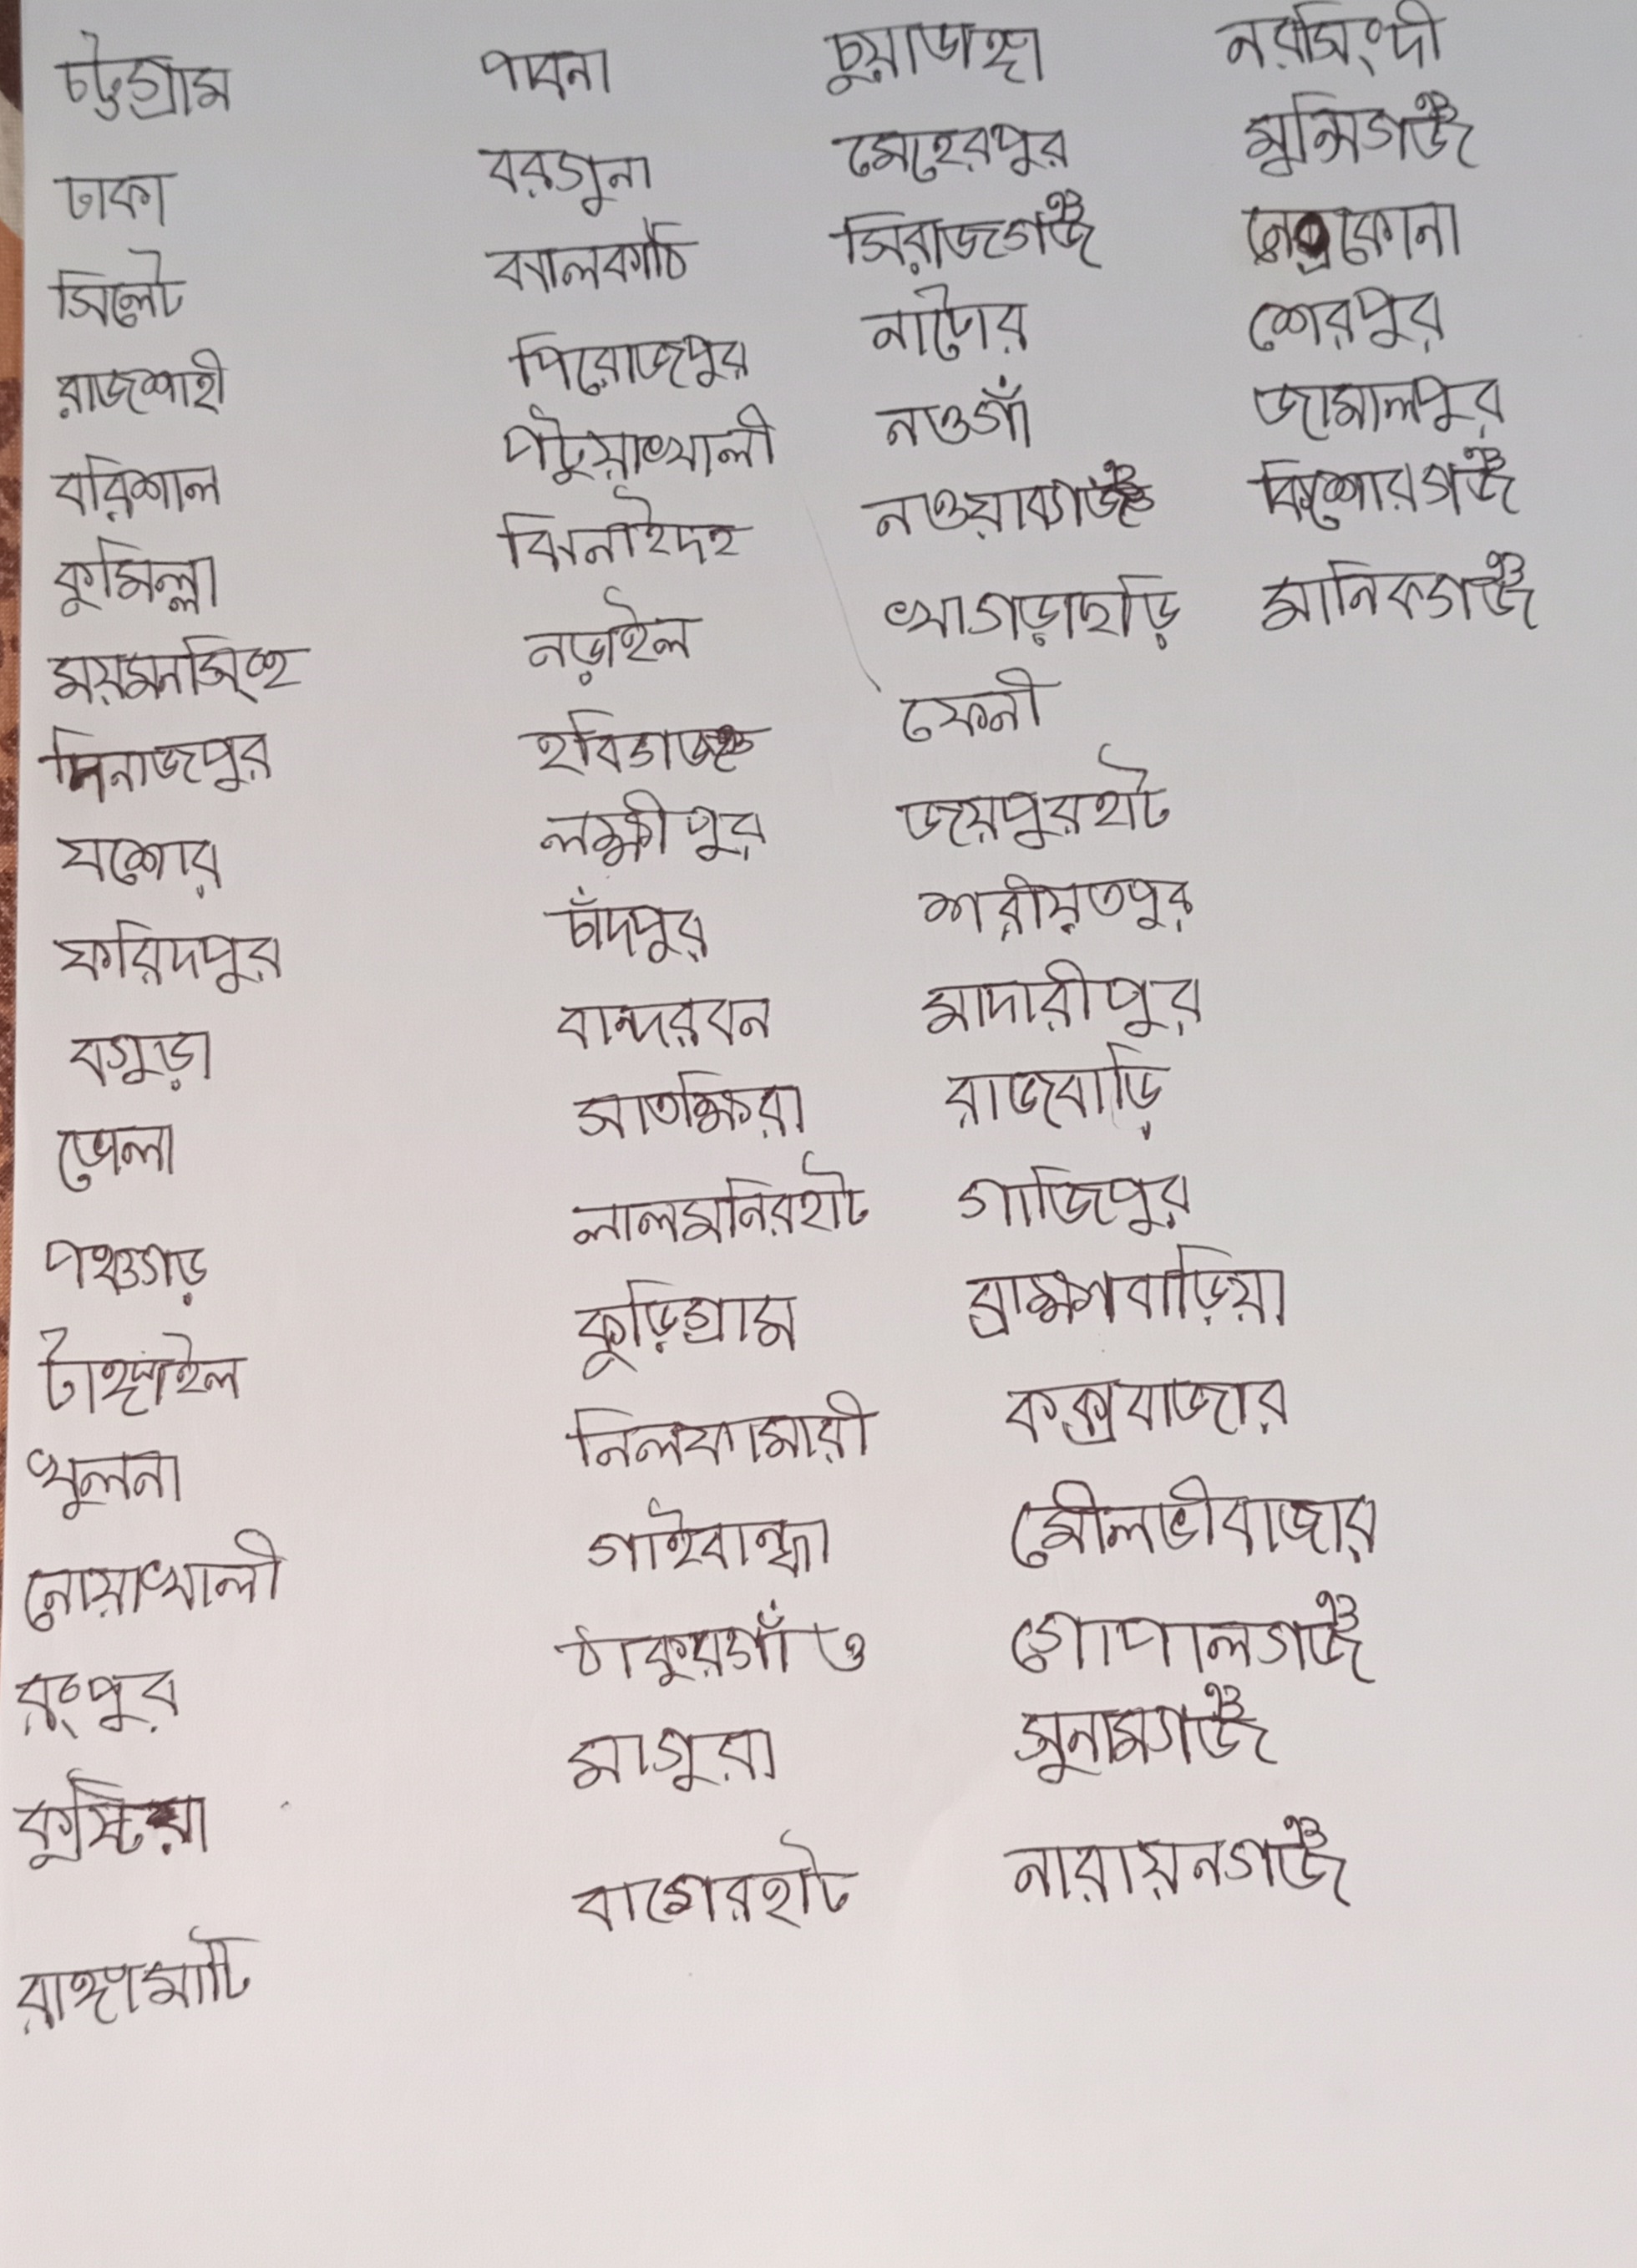 চট্টগ্রাম
ঢাকা
সিলেট
রাজশাহী
বরিশাল
কুমিল্লা
ময়মনসিংহ
দিনাজপুর
যশোর
ফরিদপুর
বগুড়া
ভোলা
পঞ্চগড়
টাঙ্গাইল
খুলনা
নোয়াখালী
রংপুর
কুষ্টিয়া
রাঙ্গামাটি
পাবনা
বরগুনা
ঝালকাঠি
পিরোজপুর
পটুয়াখালী
ঝিনাইদহ
নড়াইল
হবিগঞ্জ
লক্ষীপুর
চাঁদপুর
বান্দরবন
সাতক্ষিরা
লালমনিরহাট
কুড়িগ্রাম
নিলফামারী
গাইবান্ধা
ঠাকুরগাঁও
মাগুরা
বাগেরহাট
চুয়াডাঙ্গা
মেহেরপুর
সিরাজগঞ্জ
নাটোর
নওগাঁ
নওয়াবগঞ্জ
খাগড়াছড়ি
ফেনী
জয়পুরহাট
শরীয়তপুর
মাদারীপুর
রাজবাড়ি
গাজিপুর
ব্রাক্ষণবাড়িয়া
কক্সবাজার
মৌলভীবাজার
গোপালগঞ্জ
সুনামগঞ্জ
নারায়নগঞ্জ
নরসিংদী
মুন্সিগঞ্জ
নেত্রকোনা
শেরপুর
জামালপুর
কিশোরগঞ্জ
মানিকগঞ্জ